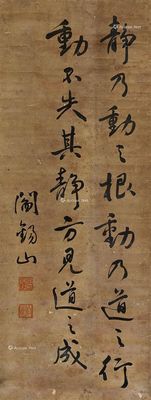 静乃動之根動乃道之行
動不失其静方見道之成
閻錫山